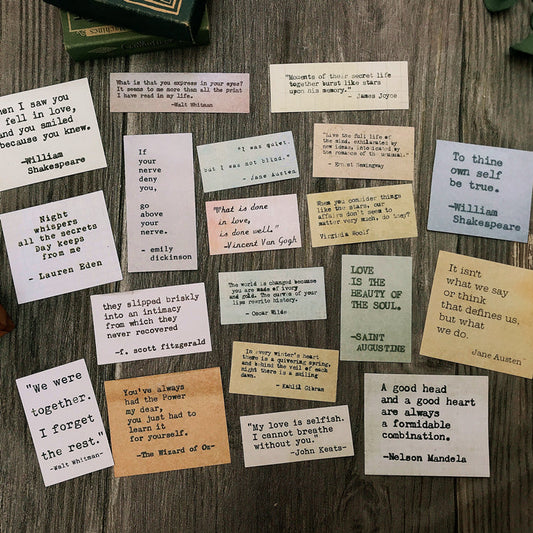 What is that you express in your eyes?
It seems to me more than all the print
I have read in my life.
-Walt Whitman
"Moments of their secret life
together burst like stars
upon his memory."
- James Joyce
When I saw you
I fell in love,
and you smiled
because you knew.
-William
Shakespeare
If
your
nerve
deny
you,
go
above
your
nerve.
- emily
dickinson
"I was quiet,
but I was not blind."
- Jane Austen
"Live the full life of
the mind, exhilarated by
new ideas, intoxicated by
the romance of the unusual."
- Ernest Hemingway
To thine
own self
be true.
-William
Shakespeare
Night
whispers
all the secrets
Day keeps
from me
- Lauren Eden
"What is done
in love,
is done well."
-Vincent Van Gogh
When you consider things
like the stars, our
affairs don't seem to
matter very much, do they?
Virginia Woolf
The world is changed because
you are made of ivory
and gold. The curves of your
lips rewrite history.
- Oscar Wilde
LOVE
IS THE
BEAUTY OF
THE SOUL.
-SAINT
AUGUSTINE
It isn't
what we say
or think
that defines us,
but what
we do.
Jane Austen
they slipped briskly
into an intimacy
from which they
never recovered
-f. scott fitzgerald
In every winter's heart
there is a quivering spring,
and behind the veil of each
night there is a smiling
dawn.
- Kahlil Gibran
"We were
together.
I forget
the rest."
-Walt Whitman-
You've always
had the Power
my dear,
you just had to
learn it
for yourself.
-The Wizard of Oz-
"My love is selfish.
I cannot breathe
without you."
-John Keats-
A good head
and a good heart
are always
a formidable
combination.
-Nelson Mandela